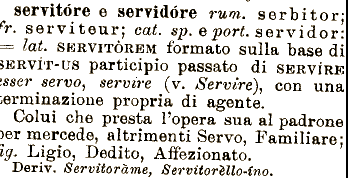 servitóre e servidóre rum. serbitor;
fr. serviteur; cat. sp. e port. servidor:
= lat. SERVITÒREM formato sulla base di
SERVÍT-US participio passato di SERVÍRE
esser servo, servire (v. Servire), con una
terminazione propria di agente.
Colui che presta l'opera sua al padrone
per mercede, altrimenti Servo, Familiare;
fig. Ligio, Dedito, Affezionato.
Deriv. Servitoràme, Servitorèllo-íno.